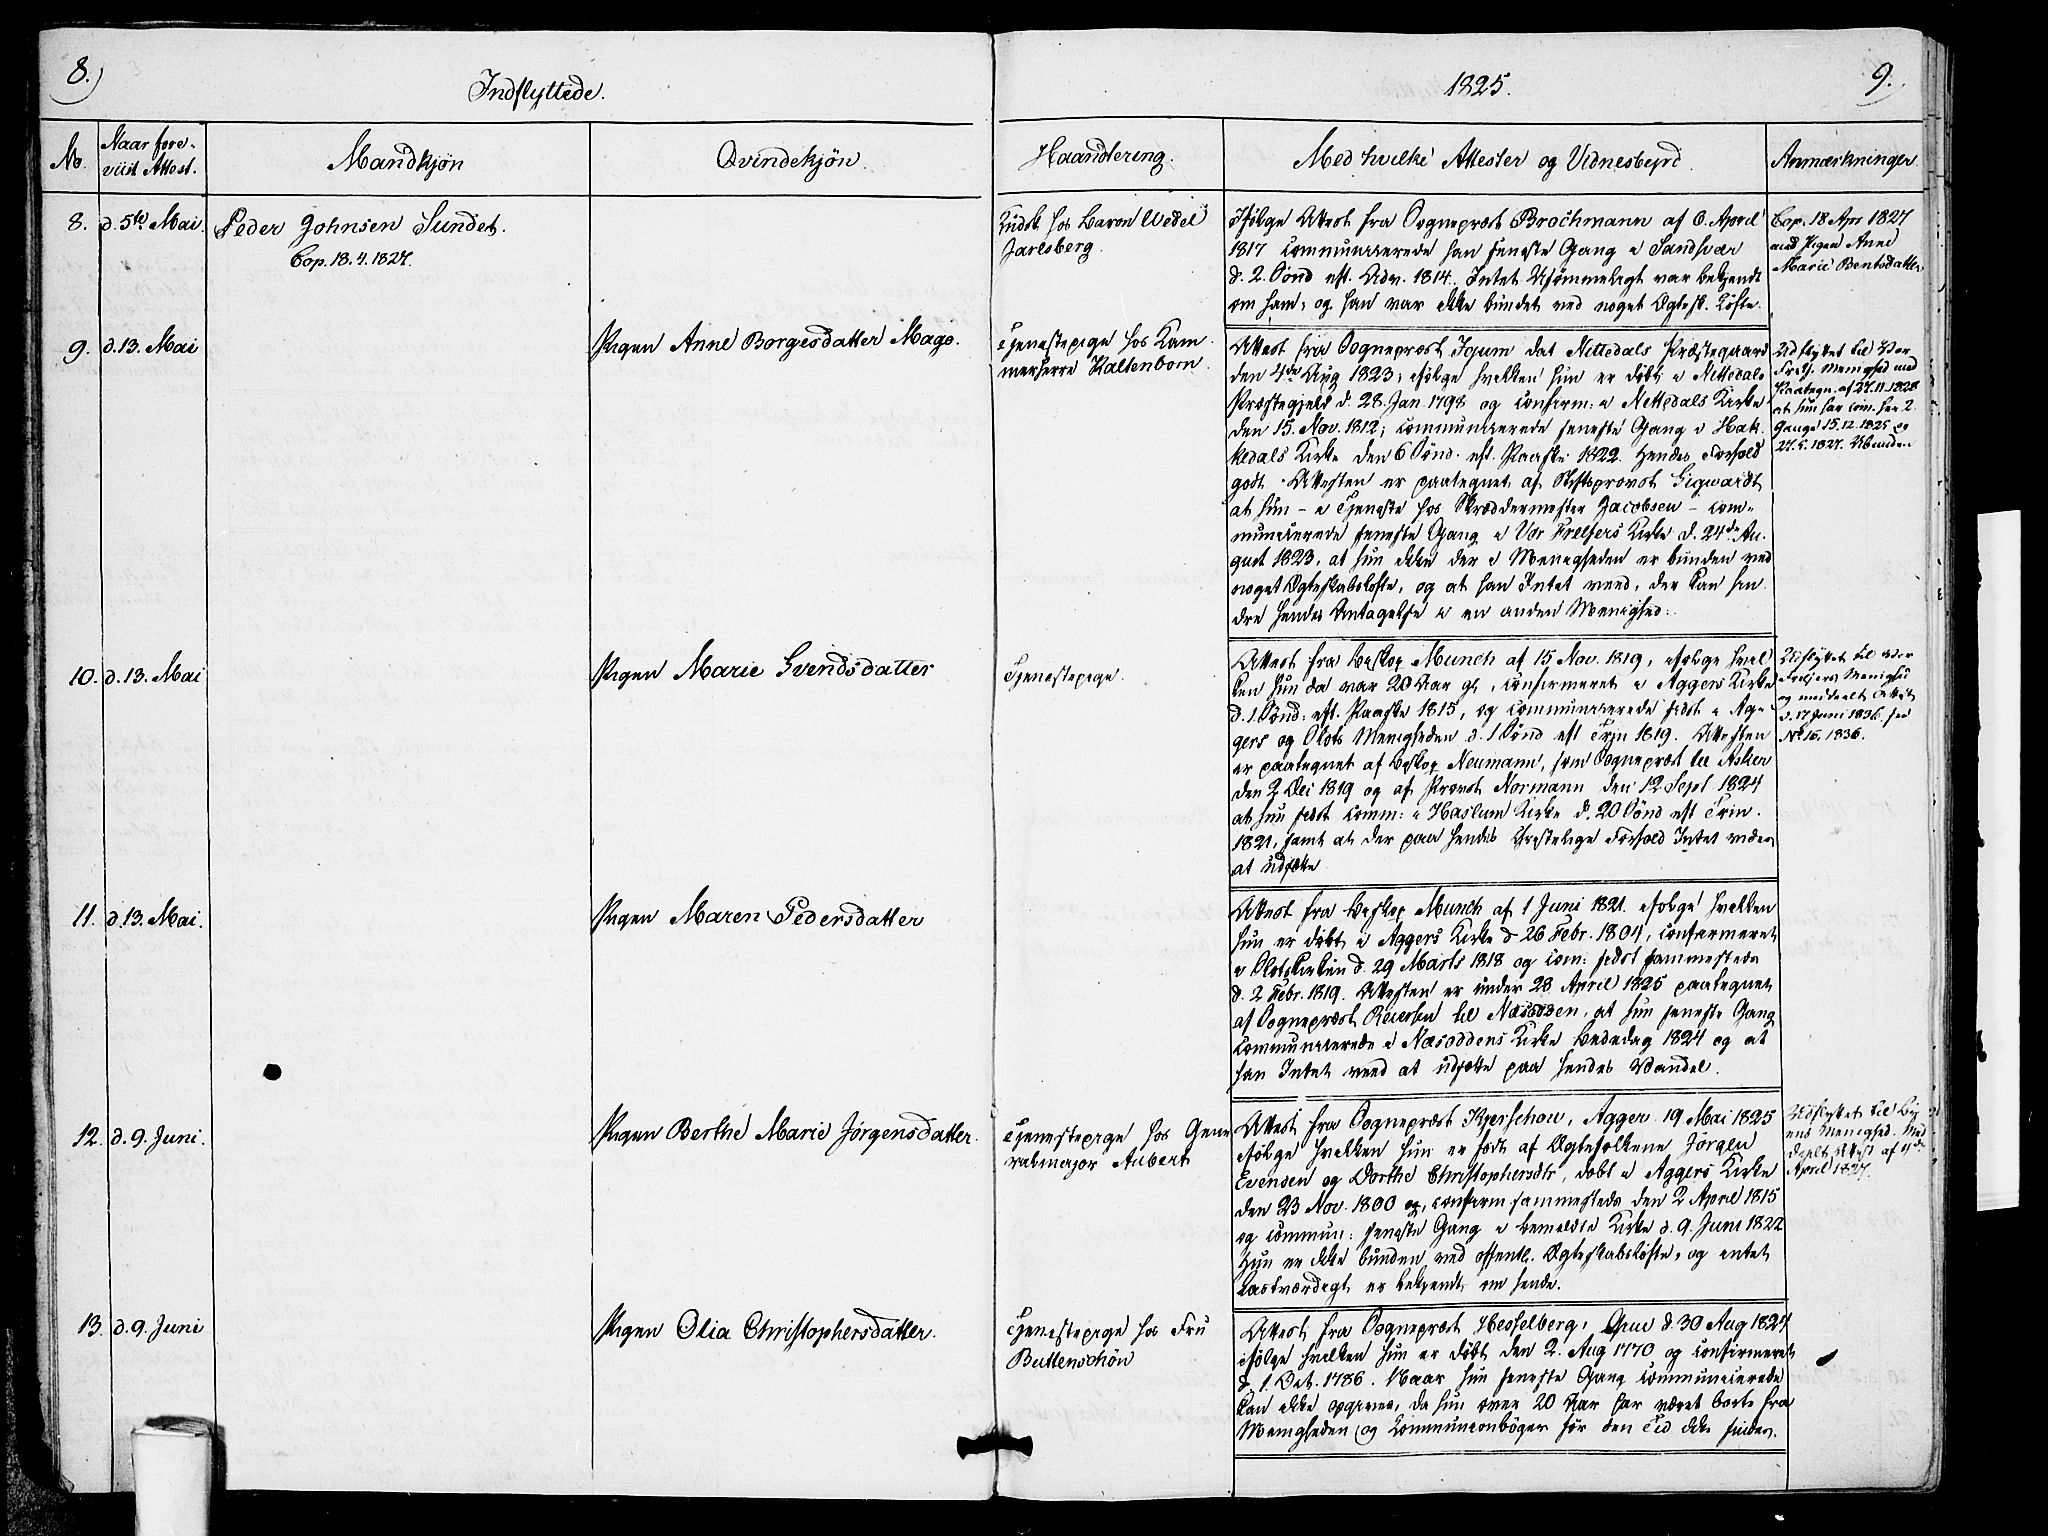 8.)
Indflyttede.
1825.
9.
No.
Naar fore-
viist Attest.
Mandkjøn
Qvindekjøn.
Haandtering.
Med hvilke Attester og Vidnesbyrd.
Anmærkninger
8. d. 5te Mai. Peder Johnsen Sundet.
Cop. 18.4.1827.
Kudsk hos Baron Wedel
Jarlsberg.
Ifølge Attest fra Sognepræst Brochmann af 6. April
1817 communicerede han seneste Gang i Sandsvær
d. 2. Sønd. eft. Adv. 1814. Intet Usømmeligt var bekjendt
om ham, og han var ikke bundet ved noget Ægtesk. Løfte.
Cop. 18 Apr 1827
med Pigen Anne
Marie Bentsdatter
9. d. 13. Mai
Pigen Anne Borgesdatter Mago.
Tjenestepige hos Kam
merherre Kaltenborn.
Attest fra Sognepræst Irgum dat Nittedals Præstegaard
den 4de Aug 1823, ifølge hvilken hun er døbt i Nittedals
Præstegjeld d. 28. Jan 1798 og confirm: i Nittedals Kirke
den 15. Nov. 1812; communicerede seneste Gang i Hak
kedals Kirke den 6 Sønd. eft. Paaske 1822. Hendes Forhold
godt. Attesten er paategnet af Stiftsprovst Sigwardt
at hun - i Tjeneste hos Skræddermester Jacobsen - com-
municerede seneste Gang i Vor Frelsers Kirke d. 24de Au-
gust 1823, at hun ikke der i Menigheden er bunden ved
noget Ægteskabsløfte, og at han Intet veed, der kan hin
dre hendes Antagelse i en anden Menighed.
Udflyttet til Vor
Frels. Menighed med
Paategn. af 27.11.1828
at hun har com. her 2
Gange 15.12.1825 og
27.5.1827. Ubunden
10. d. 13. Mai
Pigen Marie Svendsdatter
Tjenestepige.
Attest fra Biskop Munch af 15 Nov. 1819, ifølge hvil
ken hun da var 20 Aar gl, confirmeret i Aggers Kirke
d. 1. Sønd: eft. Paaske 1815, og communicerede sidst i Ag-
gers og Slots Menigheden d. 1 Sønd eft Trin 1819. Attesten
er paategnet af Biskop Neumann, som Sognepræst til Asker
den 2 Dec 1819 og af Provst Normann den 12 Sept 1824
at hun sidst comm: i Haslum Kirke d. 20 Sønd eft Trin.
1821, samt at der paa hendes christelige Forhold Intet vides
at udsætte
Udflyttet til Vor
Frelsers Menighed
og meddeelt Attest
d. 17 Juni 1836. see
No 16. 1836.
11. d. 13. Mai.
Pigen Maren Pedersdatter
Attest fra Biskop Munch af 1 Juni 1821. ifølge hvilken
hun er døbt i Aggers Kirke d 26 Febr. 1804, confirmeret
i Slotskirken d. 29 Marts 1818 og com: sidst sammesteds
d. 2 Febr. 1819. Attesten er under 28 April 1825 paategnet
af Sognepræst Reiersen til Næsodden, at hun seneste Gang
communicerede i Næsoddens Kirke Bededag 1824 og at
han Intet veed at udsætte paa hendes Vandel.
12. d. 9. Juni.
Pigen Berthe Marie Jørgensdatter.
Tjenestepige hos Gene
ralmajor Aubert
Attest fra Sognepræst Kjerschou, Agger 19 Mai 1825
ifølge hvilken hun er født af Ægtefolkene Jørgen
Evensen og Dorthe Christophersdtr, døbt i Aggers Kirke
den 23 Nov. 1800 og confirm sammesteds den 2 April 1815
og commun: seneste Gang i bemeldte Kirke d. 9. Juni 1822
Hun er ikke bunden ved offentl. Ægteskabsløfte, og intet
Lastværdigt er bekjendt om hende.
Udflyttet til By
ens Menighed. Med
deelt Attest af
April 1827.
13. d. 9. Juni
Pigen Olia Christophersdatter.
Tjenestepige hos Fru
Buttenschön
Attest fra Sognepræst Hesselberg, Grue d. 30 Aug 1824
ifølge hvilken hun er døbt den 2. Aug 1770 og confirmeret
d. 1. Oct. 1786. Naar hun seneste Gang communicerede
kan ikke opgives, da hun over 20 Aar har været borte fra
Menigheden og Communionbøger for den Tid ikke findes.